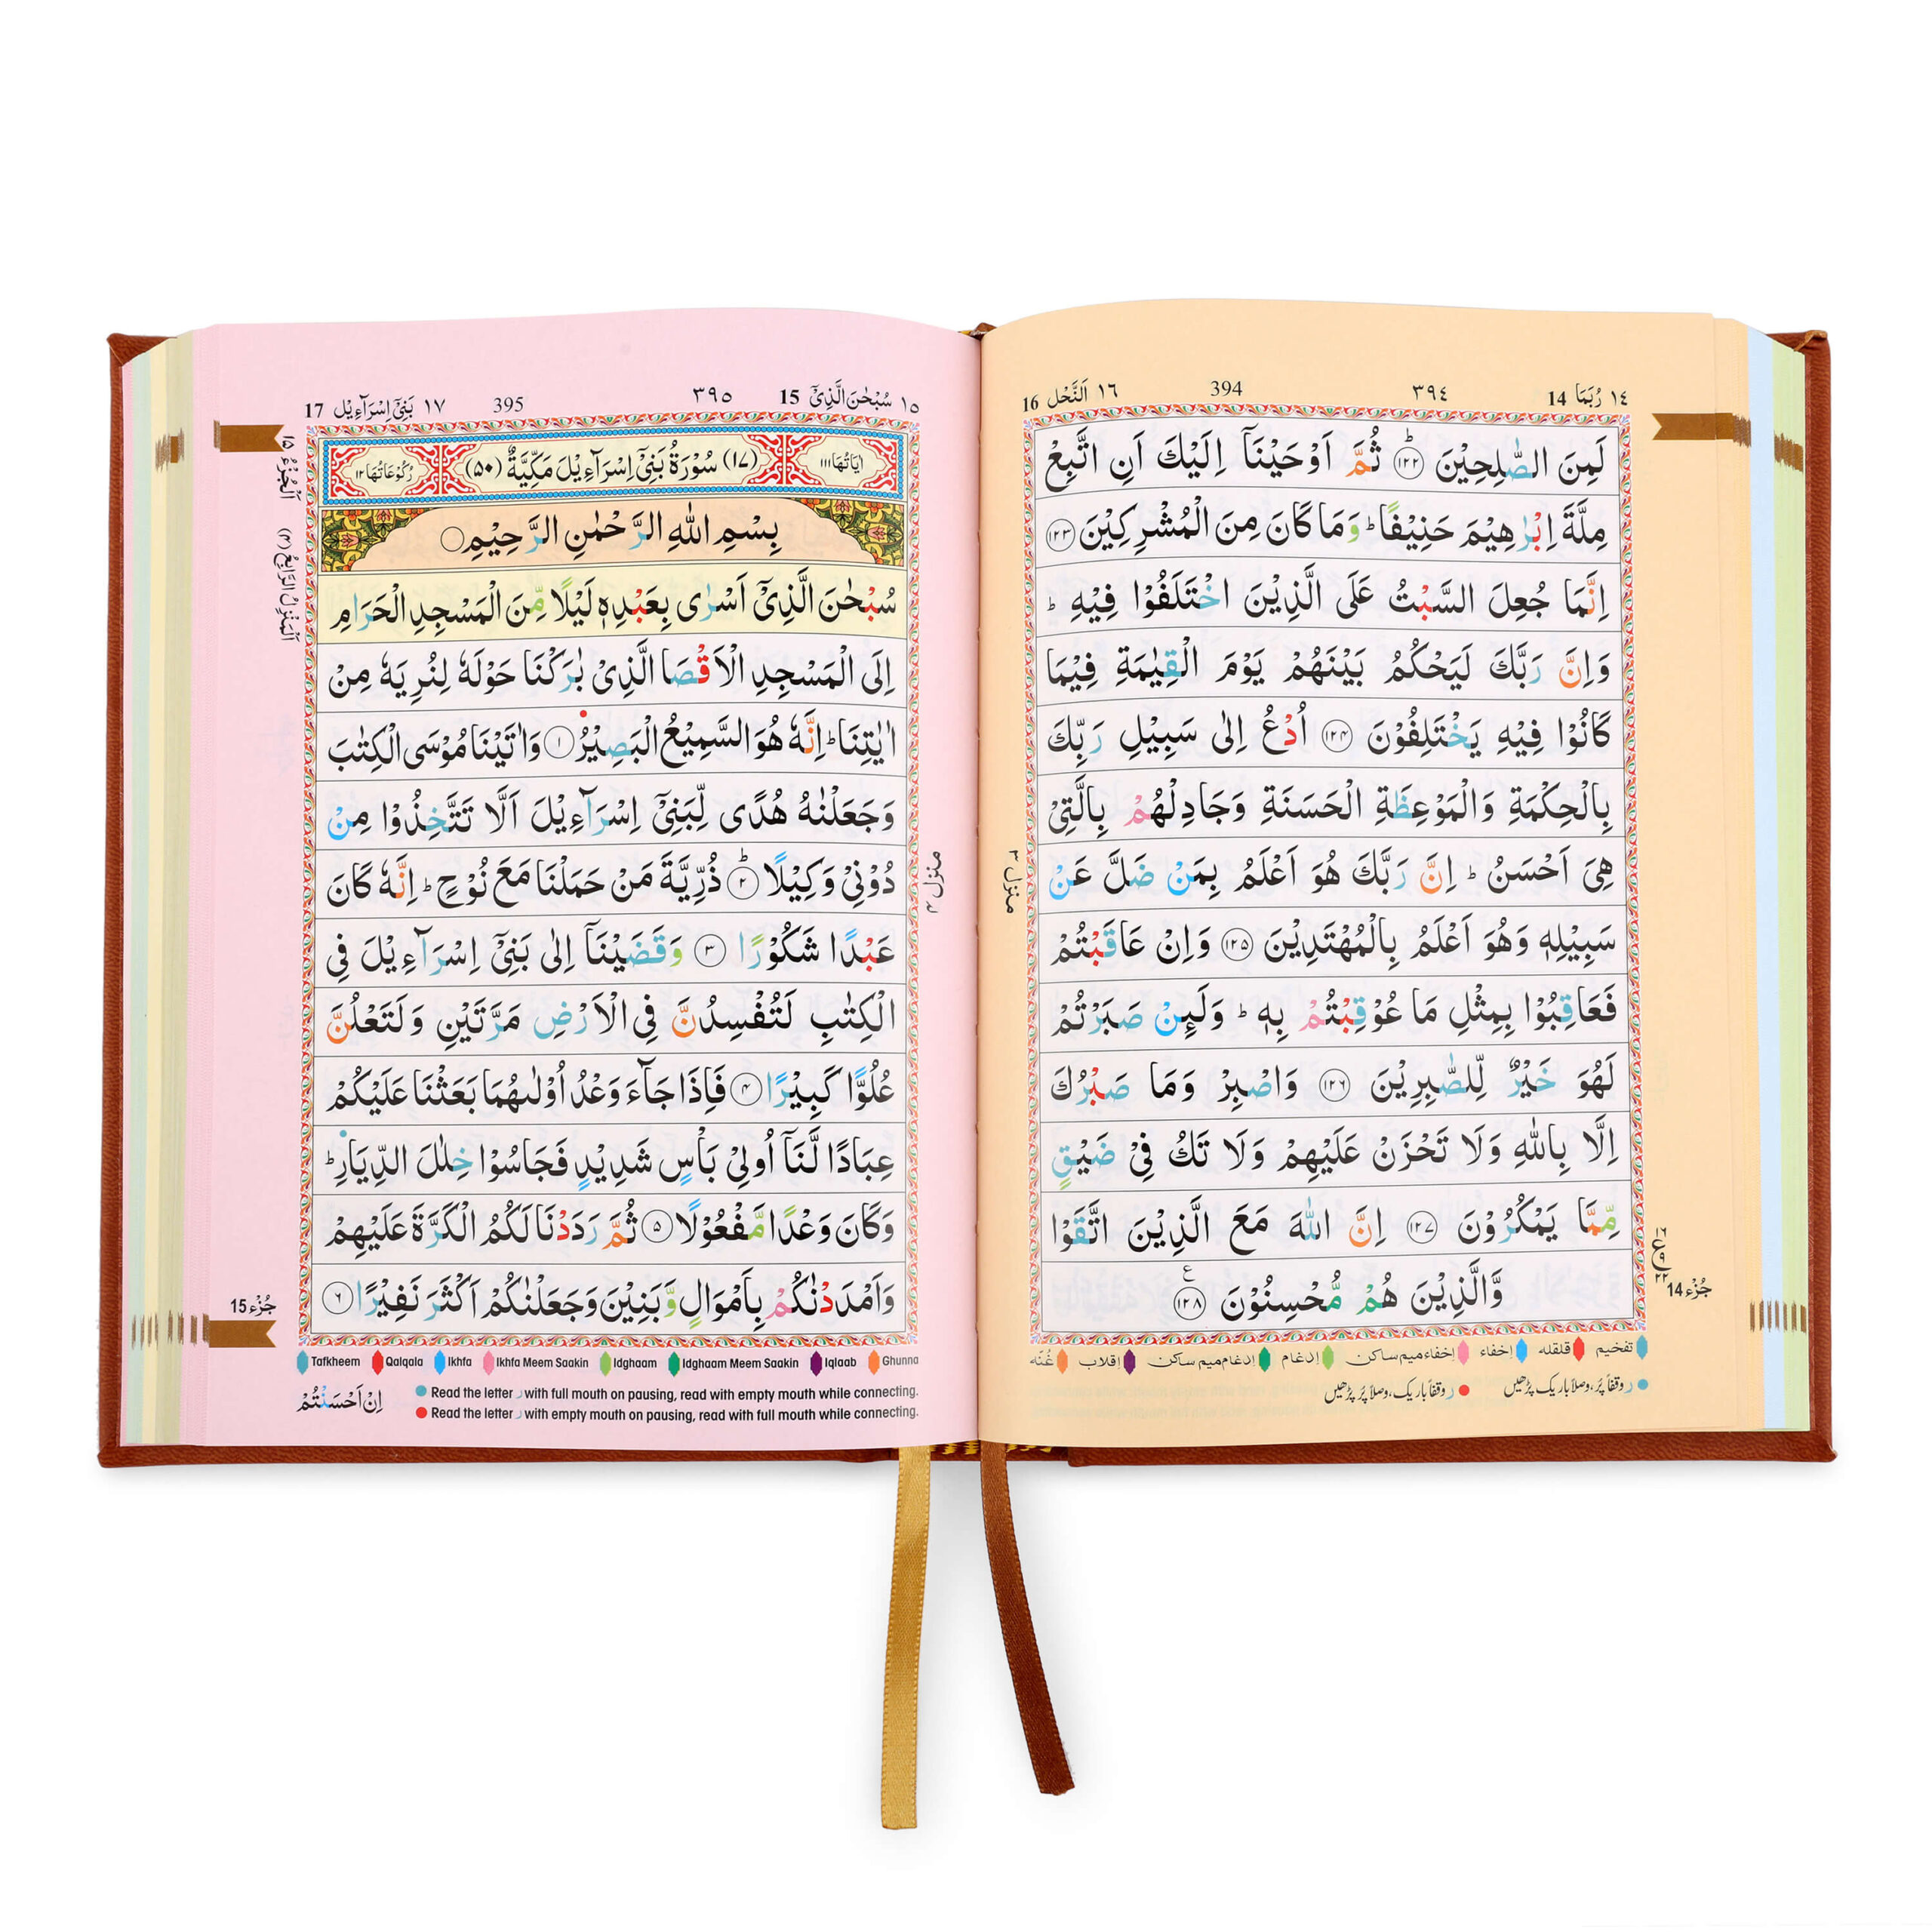 ١٤ رُبَمَا 14 ٣٩٤ 394 ١٦ اَلنَّحْل 16
لَمِنَ الصّٰلِحِيْنَ ؕ﴿۱۲۲﴾ ثُمَّ اَوْحَيْنَاۤ اِلَيْكَ اَنِ اتَّبِعْ
مِلَّةَ اِبْرٰهِيْمَ حَنِيْفًا ؕ وَمَا كَانَ مِنَ الْمُشْرِكِيْنَ ﴿۱۲۳﴾
اِنَّمَا جُعِلَ السَّبْتُ عَلَى الَّذِيْنَ اخْتَلَفُوْا فِيْهِ ؕ
وَاِنَّ رَبَّكَ لَيَحْكُمُ بَيْنَهُمْ يَوْمَ الْقِيٰمَةِ فِيْمَا
كَانُوْا فِيْهِ يَخْتَلِفُوْنَ ﴿۱۲۴﴾ اُدْعُ اِلٰى سَبِيْلِ رَبِّكَ
بِالْحِكْمَةِ وَالْمَوْعِظَةِ الْحَسَنَةِ وَجَادِلْهُمْ بِالَّتِىْ
هِىَ اَحْسَنُ ؕ اِنَّ رَبَّكَ هُوَ اَعْلَمُ بِمَنْ ضَلَّ عَنْ
سَبِيْلِهٖ وَهُوَ اَعْلَمُ بِالْمُهْتَدِيْنَ ﴿۱۲۵﴾ وَاِنْ عَاقَبْتُمْ
فَعَاقِبُوْا بِمِثْلِ مَا عُوْقِبْتُمْ بِهٖ ؕ وَلَىِٕنْ صَبَرْتُمْ
لَهُوَ خَيْرٌ لِّلصّٰبِرِيْنَ ﴿۱۲۶﴾ وَاصْبِرْ وَمَا صَبْرُكَ
اِلَّا بِاللّٰهِ وَلَا تَحْزَنْ عَلَيْهِمْ وَلَا تَكُ فِىْ ضَيْقٍ
مِّمَّا يَمْكُرُوْنَ ﴿۱۲۷﴾ اِنَّ اللّٰهَ مَعَ الَّذِيْنَ اتَّقَوْا
وَّالَّذِيْنَ هُمْ مُّحْسِنُوْنَ ﴿۱۲۸﴾ ع
منزل ٣
١٦
ع ٩
٢٢
جُزْء 14
تفخیم قلقله إخفاء إخفاء میم ساكن إدغام إدغام میم ساكن إقلاب غُنّه
ر وقفاً پُر، وصلاً باریک پڑھیں ر وقفاً باریک، وصلاً پُر پڑھیں
١٥ سُبْحٰنَ الَّذِىْۤ 15 ٣٩٥ 395 ١٧ بَنِىْۤ اِسْرَآءِيْل 17
اٰيَاتُهَا ١١١ (١٧) سُوْرَةُ بَنِىْۤ اِسْرَآءِيْلَ مَكِّيَّةٌ (٥٠) رُكُوْعَاتُهَا ١٢
بِسْمِ اللّٰهِ الرَّحْمٰنِ الرَّحِيْمِ
سُبْحٰنَ الَّذِىْۤ اَسْرٰى بِعَبْدِهٖ لَيْلًا مِّنَ الْمَسْجِدِ الْحَرَامِ
اِلَى الْمَسْجِدِ الْاَقْصَا الَّذِىْ بٰرَكْنَا حَوْلَهٗ لِنُرِيَهٗ مِنْ
اٰيٰتِنَا ؕ اِنَّهٗ هُوَ السَّمِيْعُ الْبَصِيْرُ ﴿۱﴾ وَاٰتَيْنَا مُوْسَى الْكِتٰبَ
وَجَعَلْنٰهُ هُدًى لِّبَنِىْۤ اِسْرَآءِيْلَ اَلَّا تَتَّخِذُوْا مِنْ
دُوْنِىْ وَكِيْلًا ؕ﴿۲﴾ ذُرِّيَّةَ مَنْ حَمَلْنَا مَعَ نُوْحٍ ؕ اِنَّهٗ كَانَ
عَبْدًا شَكُوْرًا ﴿۳﴾ وَقَضَيْنَاۤ اِلٰى بَنِىْۤ اِسْرَآءِيْلَ فِى
الْكِتٰبِ لَتُفْسِدُنَّ فِى الْاَرْضِ مَرَّتَيْنِ وَلَتَعْلُنَّ
عُلُوًّا كَبِيْرًا ﴿۴﴾ فَاِذَا جَآءَ وَعْدُ اُوْلٰىهُمَا بَعَثْنَا عَلَيْكُمْ
عِبَادًا لَّنَاۤ اُولِىْ بَاْسٍ شَدِيْدٍ فَجَاسُوْا خِلٰلَ الدِّيَارِ ؕ
وَكَانَ وَعْدًا مَّفْعُوْلًا ﴿۵﴾ ثُمَّ رَدَدْنَا لَكُمُ الْكَرَّةَ عَلَيْهِمْ
وَاَمْدَدْنٰكُمْ بِاَمْوَالٍ وَّبَنِيْنَ وَجَعَلْنٰكُمْ اَكْثَرَ نَفِيْرًا ﴿۶﴾
منزل ٤
اَلْجُزْءُ ١٥
اَلْمَنْزِلُ الرَّابِعُ (٤)
جُزْء 15
Tafkheem Qalqala Ikhfa Ikhfa Meem Saakin Idghaam Idghaam Meem Saakin Iqlaab Ghunna
Read the letter ر with full mouth on pausing, read with empty mouth while connecting.
Read the letter ر with empty mouth on pausing, read with full mouth while connecting.
اِنْ اَحْسَنْتُمْ